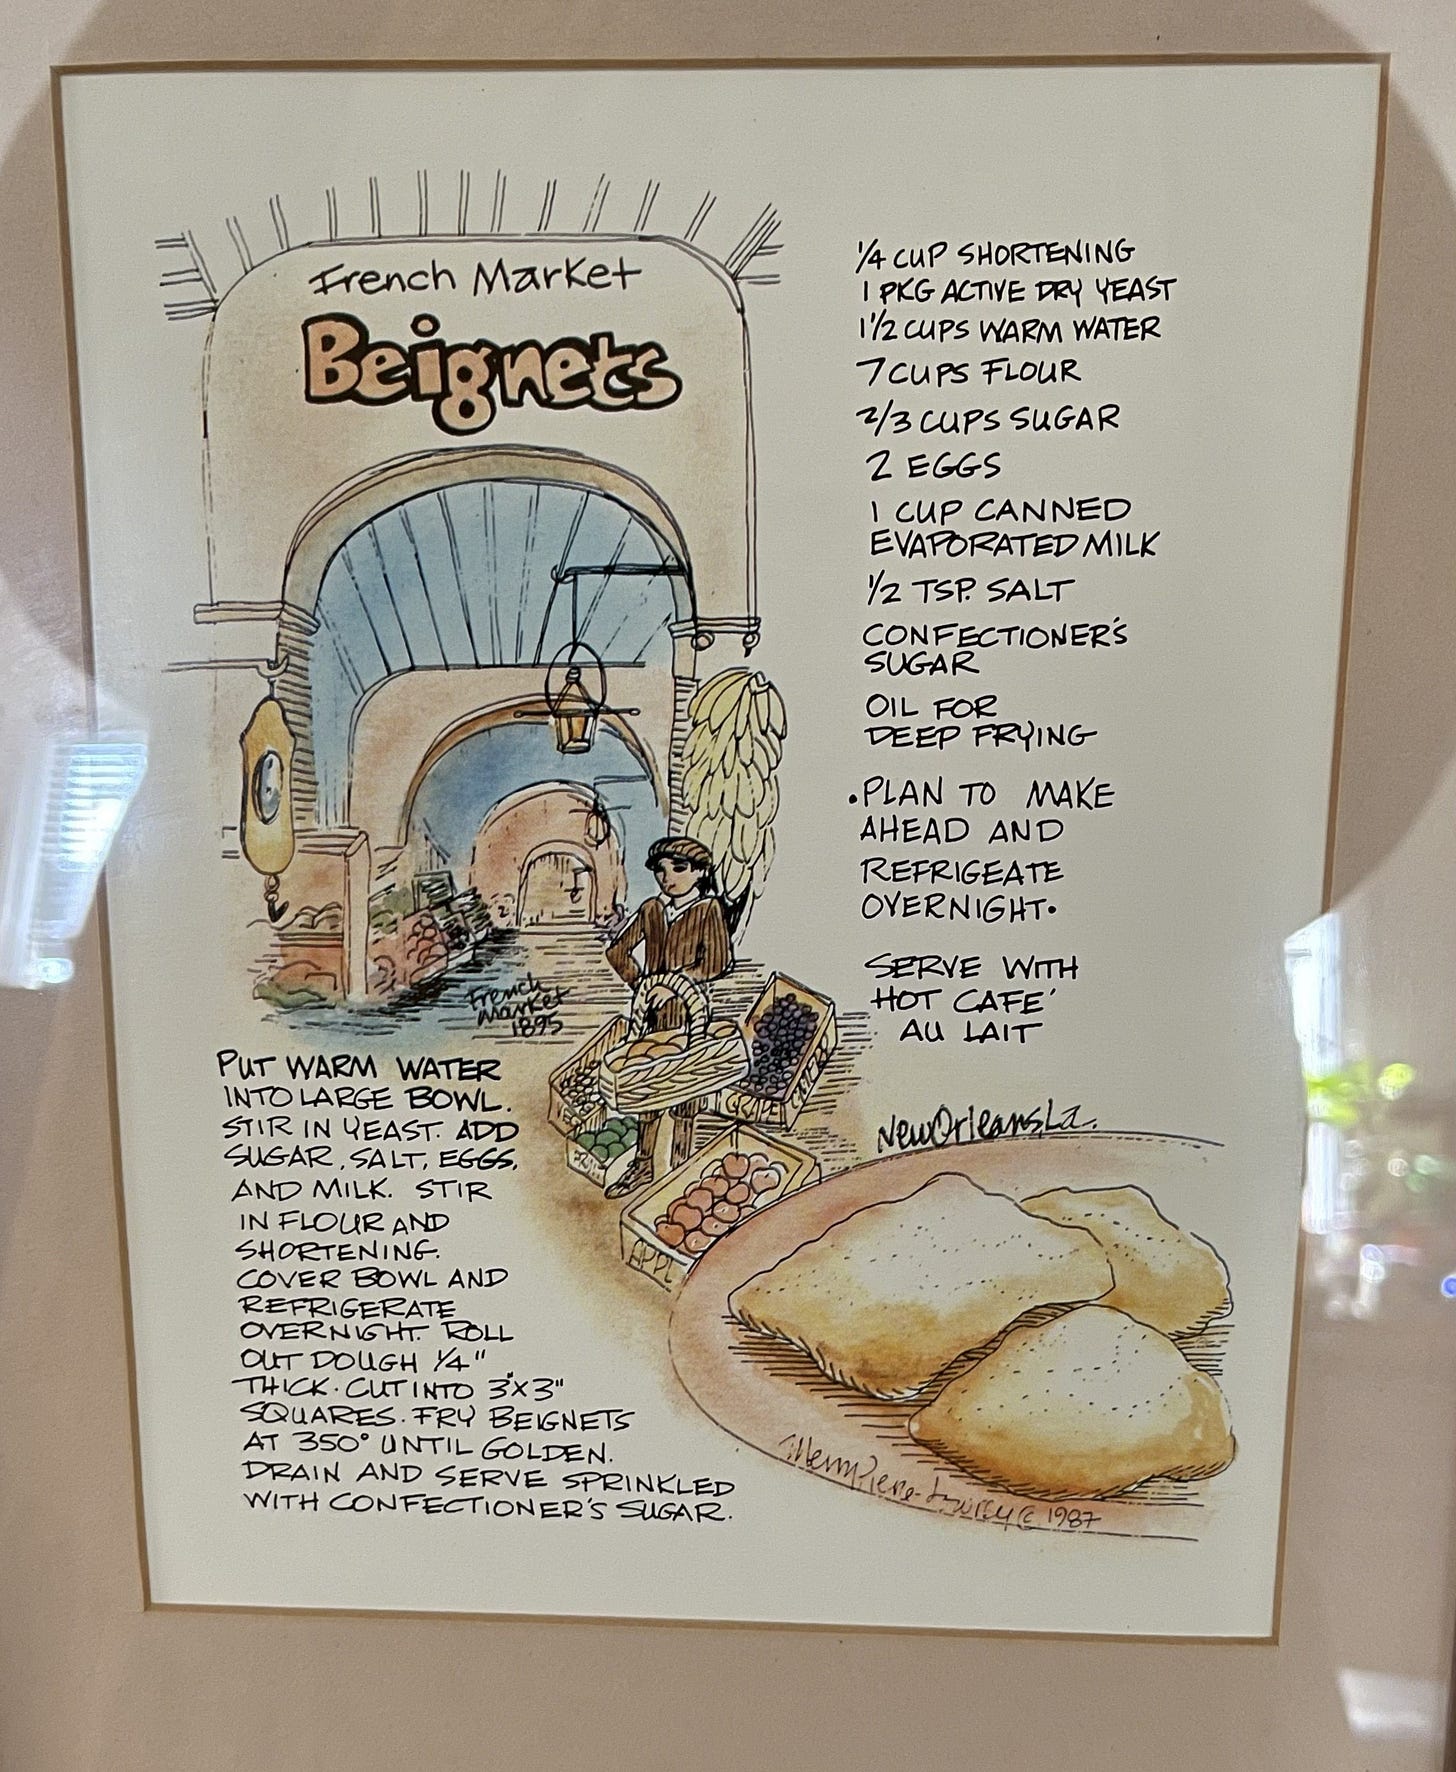 French Market
Beignets
1/4 CUP SHORTENING
1 PKG ACTIVE DRY YEAST
1 1/2 CUPS WARM WATER
7 CUPS FLOUR
2/3 CUPS SUGAR
2 EGGS
1 CUP CANNED
EVAPORATED MILK
1/2 TSP. SALT
CONFECTIONER'S
SUGAR
OIL FOR
DEEP FRYING
•PLAN TO MAKE
AHEAD AND
REFRIGEATE
OVERNIGHT•
SERVE WITH
HOT CAFE'
AU LAIT
French
Market
1895
PUT WARM WATER
INTO LARGE BOWL.
STIR IN YEAST. ADD
SUGAR, SALT, EGGS,
AND MILK. STIR
IN FLOUR AND
SHORTENING.
COVER BOWL AND
REFRIGERATE
OVERNIGHT. ROLL
OUT DOUGH 1/4"
THICK. CUT INTO 3"X3"
SQUARES. FRY BEIGNETS
AT 350° UNTIL GOLDEN.
DRAIN AND SERVE SPRINKLED
WITH CONFECTIONER'S SUGAR.
GRAPE
APPL
New Orleans, La.
© 1987